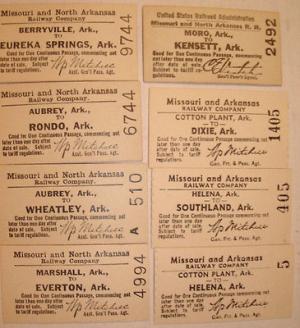 Missouri and North Arkansas
Railway Company
BERRYVILLE, Ark.,
TO
EUREKA SPRINGS, Ark.
Good for One Continuous Passage, commencing not
later than one day after
date of sale. Subject
to tariff regulations.
Asst. Gen'l Pass. Agt.
9744
Missouri and North Arkansas
Railway Company.
AUBREY, Ark.,
TO
RONDO, Ark.
Good for One Continuous Passage, commencing not
later than one day after
date of sale. Subject
to tariff regulations.
Asst. Gen'l Pass. Agt.
6744
Missouri and North Arkansas
Railway Company.
AUBREY, Ark.,
TO
WHEATLEY, Ark.
Good for One Continuous Passage, commencing not
later than one day after
date of sale. Subject
to tariff regulations.
Asst. Gen'l Pass. Agt.
A 510
Missouri and North Arkansas
Railway Company.
MARSHALL, Ark.,
TO
EVERTON, Ark.
Good for One Continuous Passage, commencing not
later than one day after
date of sale. Subject
to tariff regulations.
Asst. Gen'l Pass. Agt.
4994
United States Railroad Administration
Missouri and North Arkansas R. R.
MORO, Ark.,
TO
KENSETT, Ark.
Good for One Continuous Passage, commencing not
later than one day after
date of sale. Subject
to tariff regulations.
2492
Missouri and Arkansas
RAILWAY COMPANY
COTTON PLANT, Ark.
—TO—
DIXIE, Ark.
Good for One Continuous Passage, commencing not
later than one day after
date of sale. Subject
to tariff regulations.
Gen. Frt. & Pass. Agt.
1405
Missouri and Arkansas
RAILWAY COMPANY
HELENA, Ark.
—TO—
SOUTHLAND, Ark.
Good for One Continuous Passage, commencing not
later than one day after
date of sale. Subject
to tariff regulations.
Gen. Frt. & Pass. Agt.
405
Missouri and Arkansas
RAILWAY COMPANY
COTTON PLANT, Ark.
—TO—
HELENA, Ark.
Good for One Continuous Passage, commencing not
later than one day after
date of sale. Subject
to tariff regulations.
Gen. Frt. & Pass. Agt.
5